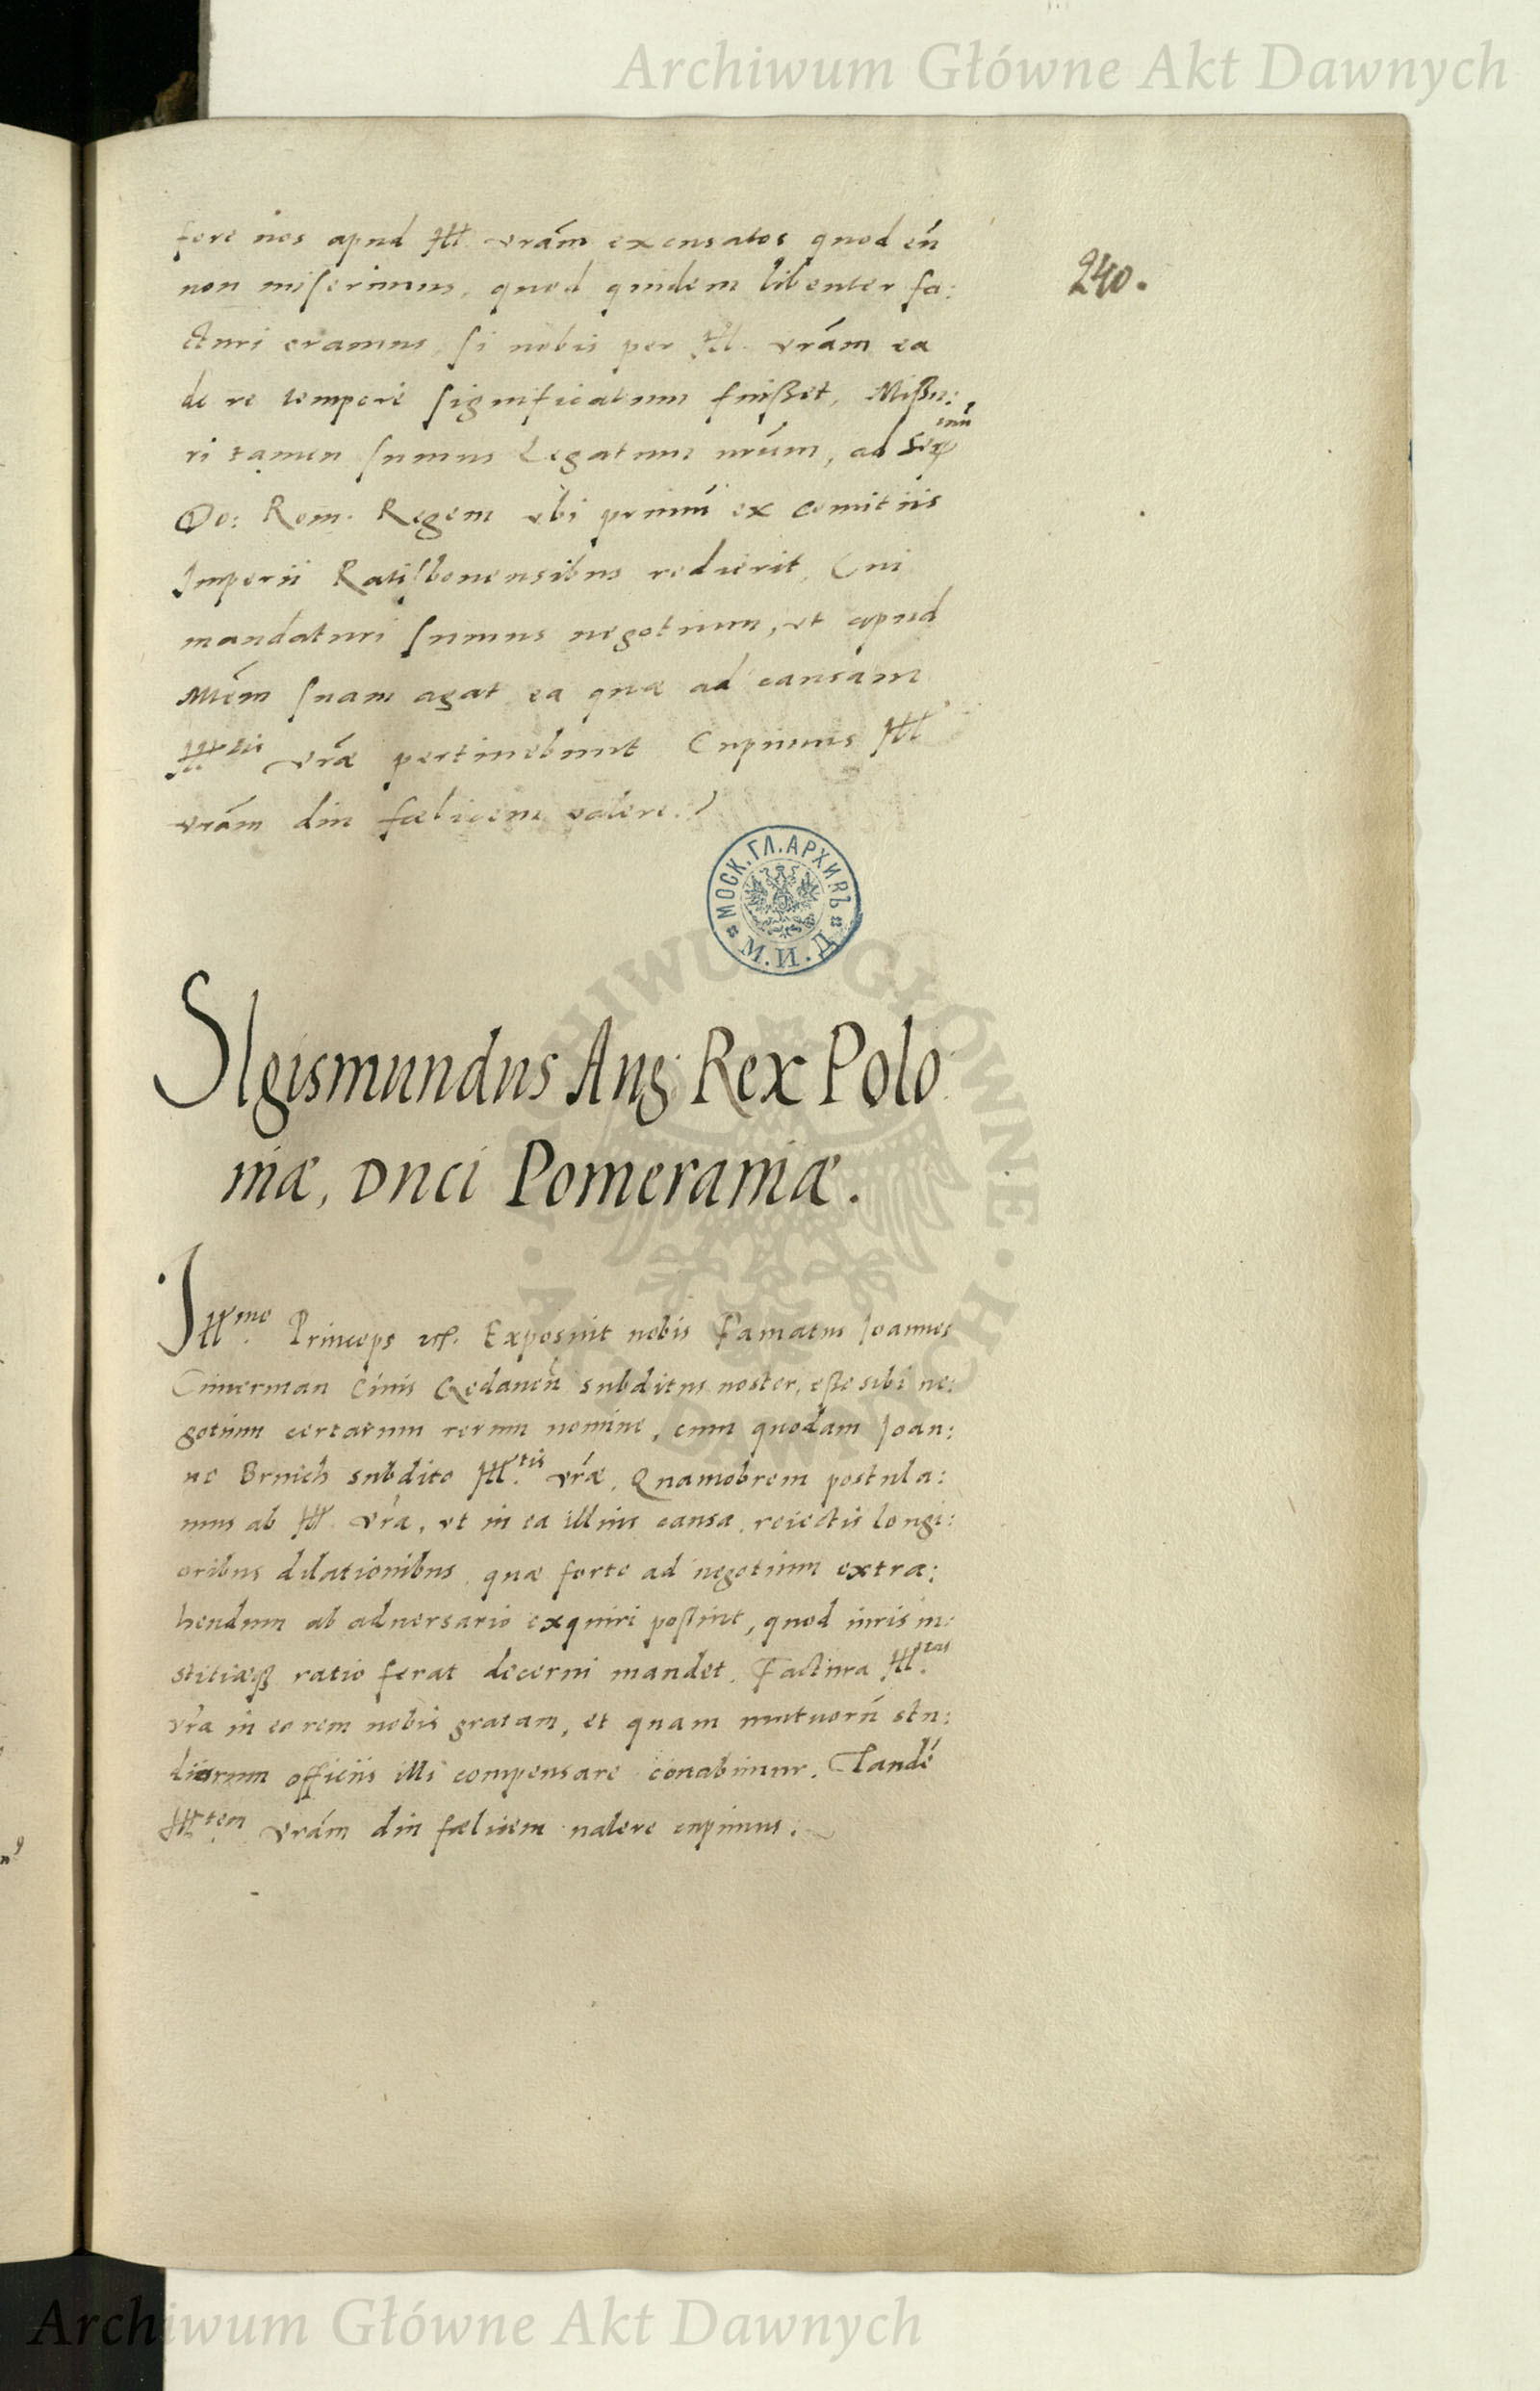 Archiwum Główne Akt Dawnych
240.
fore nos apud Ill. vrám excusatos quod eũ
non miserimus, quod quidem libenter fa:
cturi eramus, si nobis per Ill. vrám ea
de re tempore significatum fuisset, Missu:
ri tamen sumus Legatum nrũm, ad Ser enũ
Do: Rom. Regem vbi primũ ex comitiis
Imperii Ratisbonensibus redierit, Cui
mandaturi sumus negotium, vt apud
Mtẽm suam agat ea quæ ad causam
Ill tis vrǽ pertinebunt Cupimus Ill
vrám diu fœlicem valere.
МОСК. ГЛ. АРХИВЪ М. И. Д.
SIgismundus Aug Rex Polo
niæ, Duci Pomeraniæ.
Ill.me Princeps etc. Exposuit nobis Famatus Joannes
Cimerman Civis Gedaneñ subditus noster, esse sibi ne:
gotium certarum rerum nomine, cum quodam Joan:
ne Bruich subdito Ill.tis vrǽ, Quamobrem postula:
mus ab Ill. vrá, vt in ea illius causa, reiectis longi:
oribus dilationibus, quæ forte ad negotium extra:
hendum ab aduersario exquiri possint, quod iuris iu:
stitiæq3 ratio ferat decerni mandet. Factura Ill.tas
vrá in eo rem nobis gratam, et quam mutuorũ stu:
diorum officiis illi compensare conabimur. Tandẽ
Ill.tem vrám diu fœlicem ualere cupimus.
ARCHIWUM GŁÓWNE · AKT DAWNYCH ·
Archiwum Główne Akt Dawnych